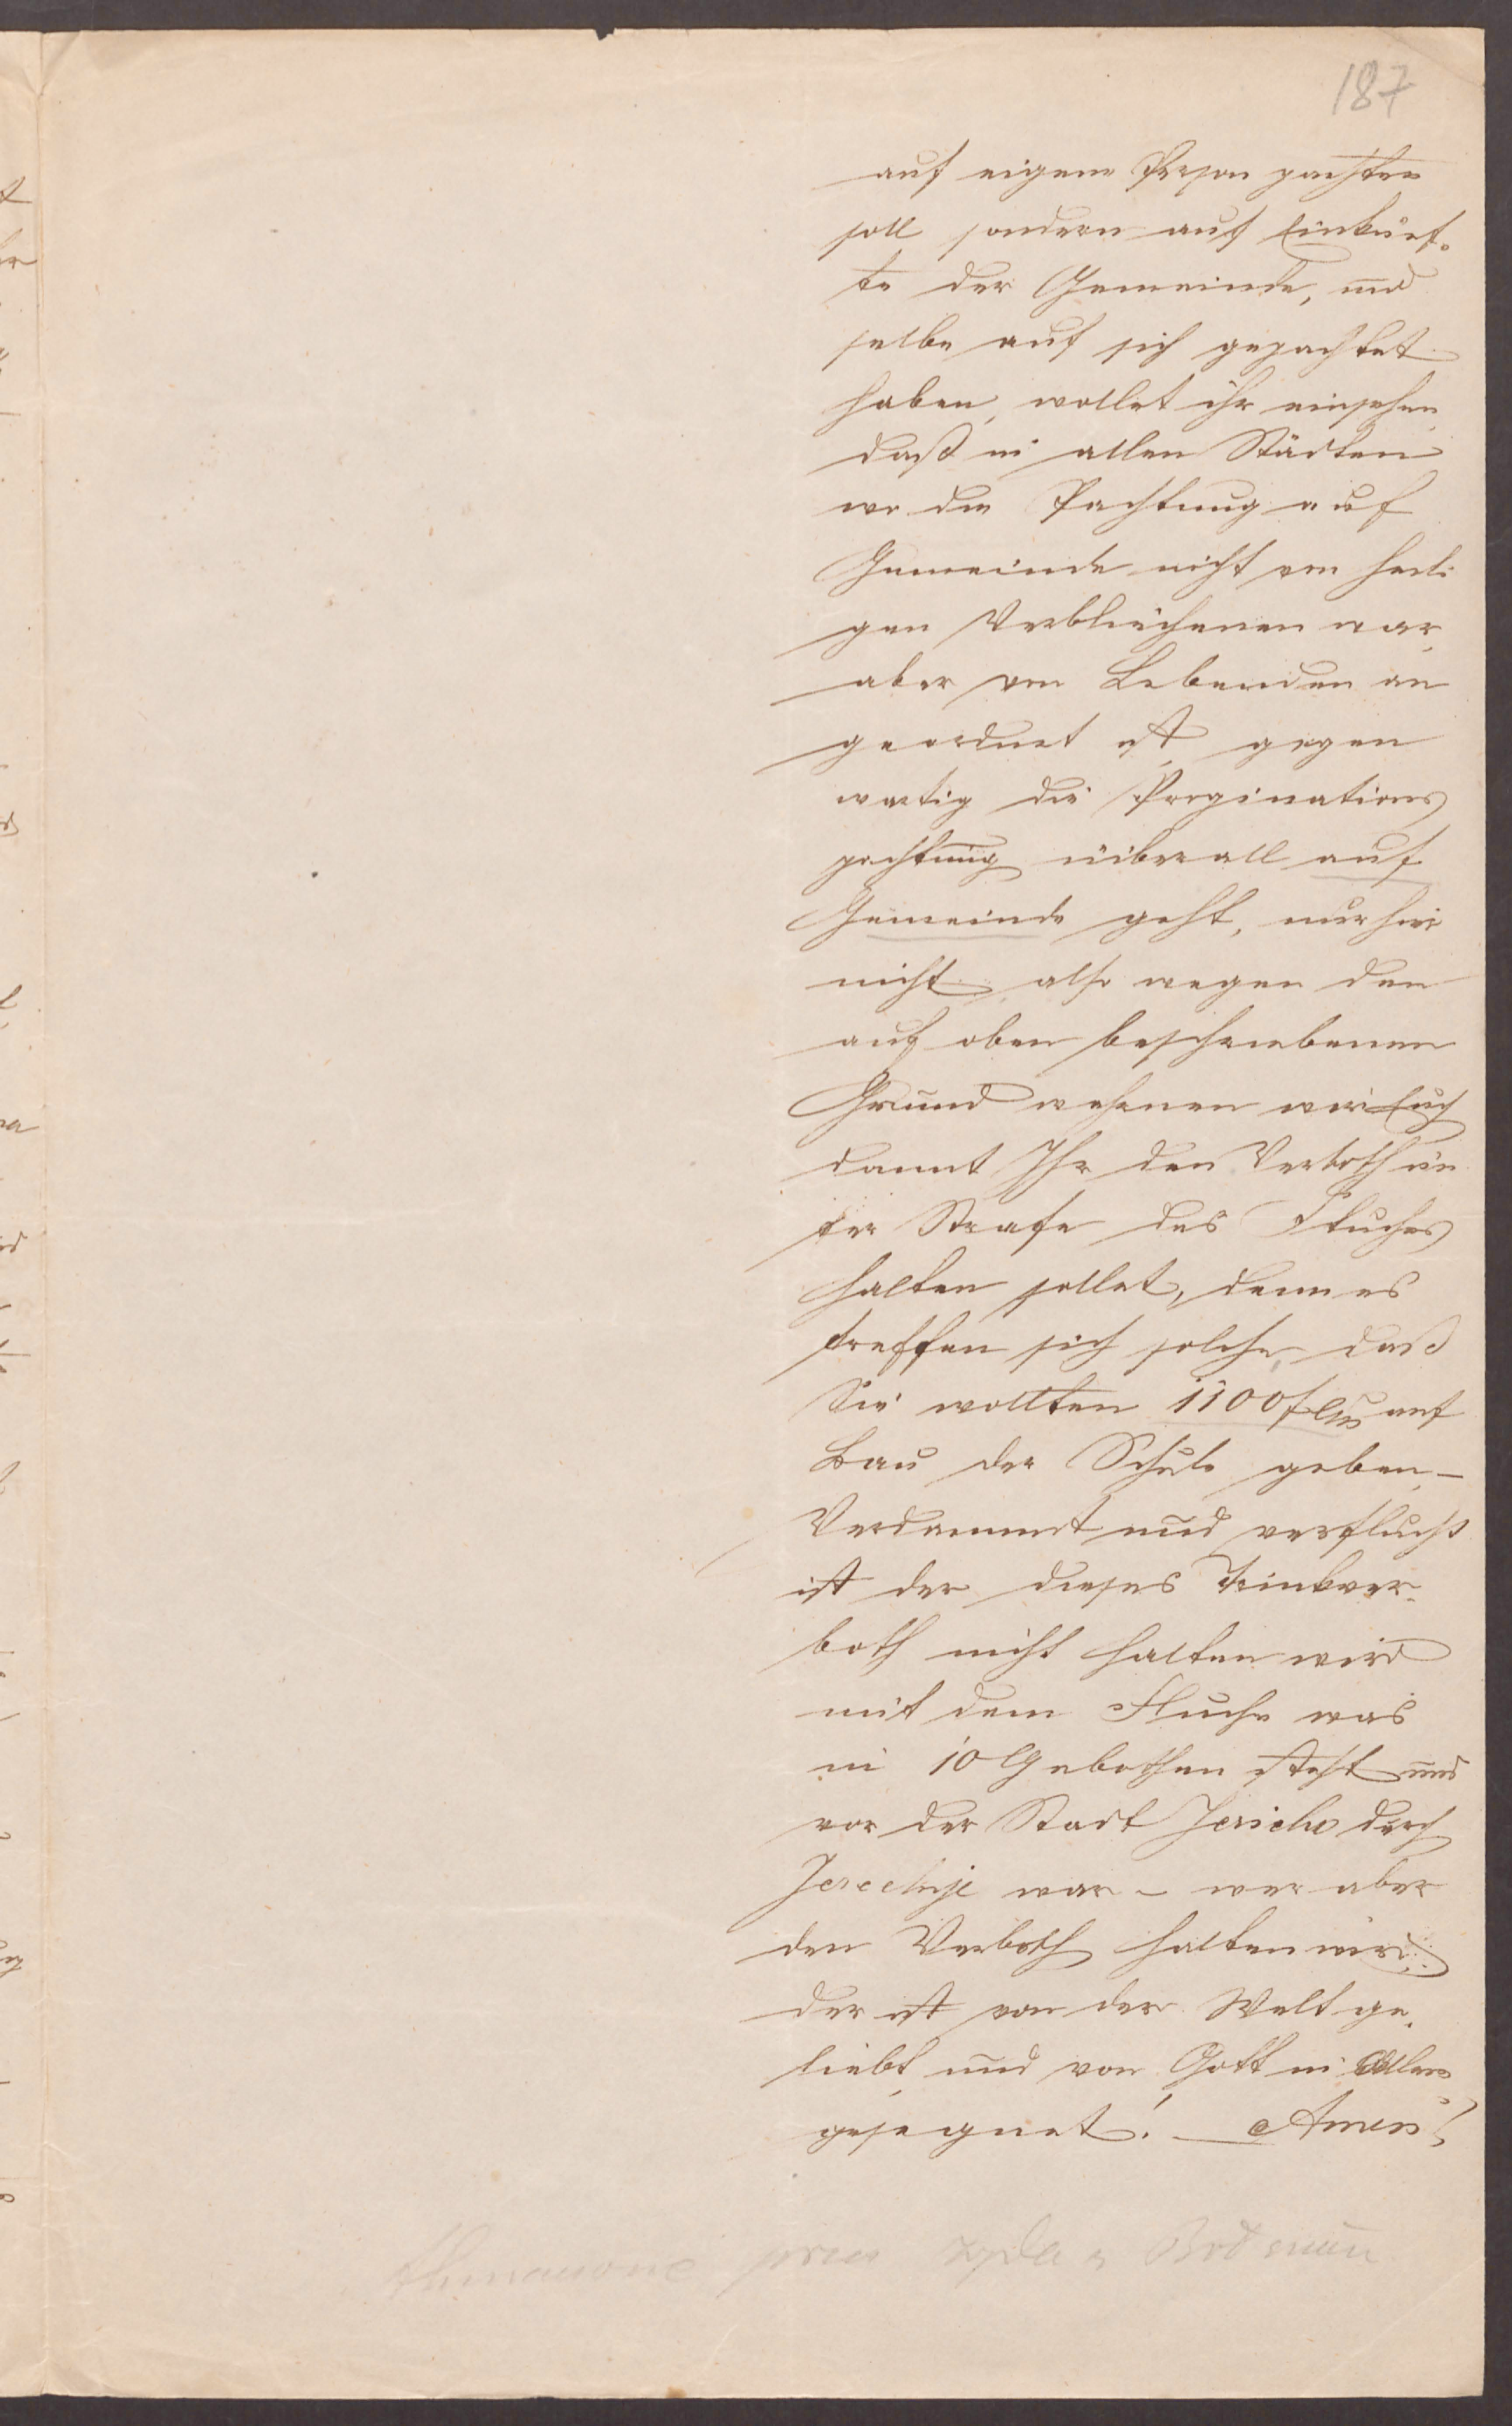 187
auf eigene Person pachten
soll sondern auf Einkünf-
te der Gemeinde, und
selbe auf sich gepachtet
haben, wollet ihr einsehen,
daß in allen Städten
wo die Pachtung auf
Gemeinde nicht von heili
gen Verblichenen war,
aber von Lebenden an
geordnet ist, gegen
wartig die Propinations
pachtung überall auf
Gemeinde geht, nur hier
nicht, also wegen den
auf oben beschriebenen
Grund wahrnen wir Euch
damit Ihr den Verboth un
ter Strafe des Fluches
halten sollet, denn es
treffen sich solche, daß
Sie wollten 1100 fl auf
Bau der Schule geben, –
Verdammt und verflucht
ist der dieses Trinkver-
both nicht halten wird
mit dem Fluche was
in 10 Gebothen steht und
vor der Stadt Jericho durch
war – wer aber
den Verboth halten wird
der ist von der Welt ge-
liebt, und von Gott in Allem
gesegnet! – Amen!
przez żyda